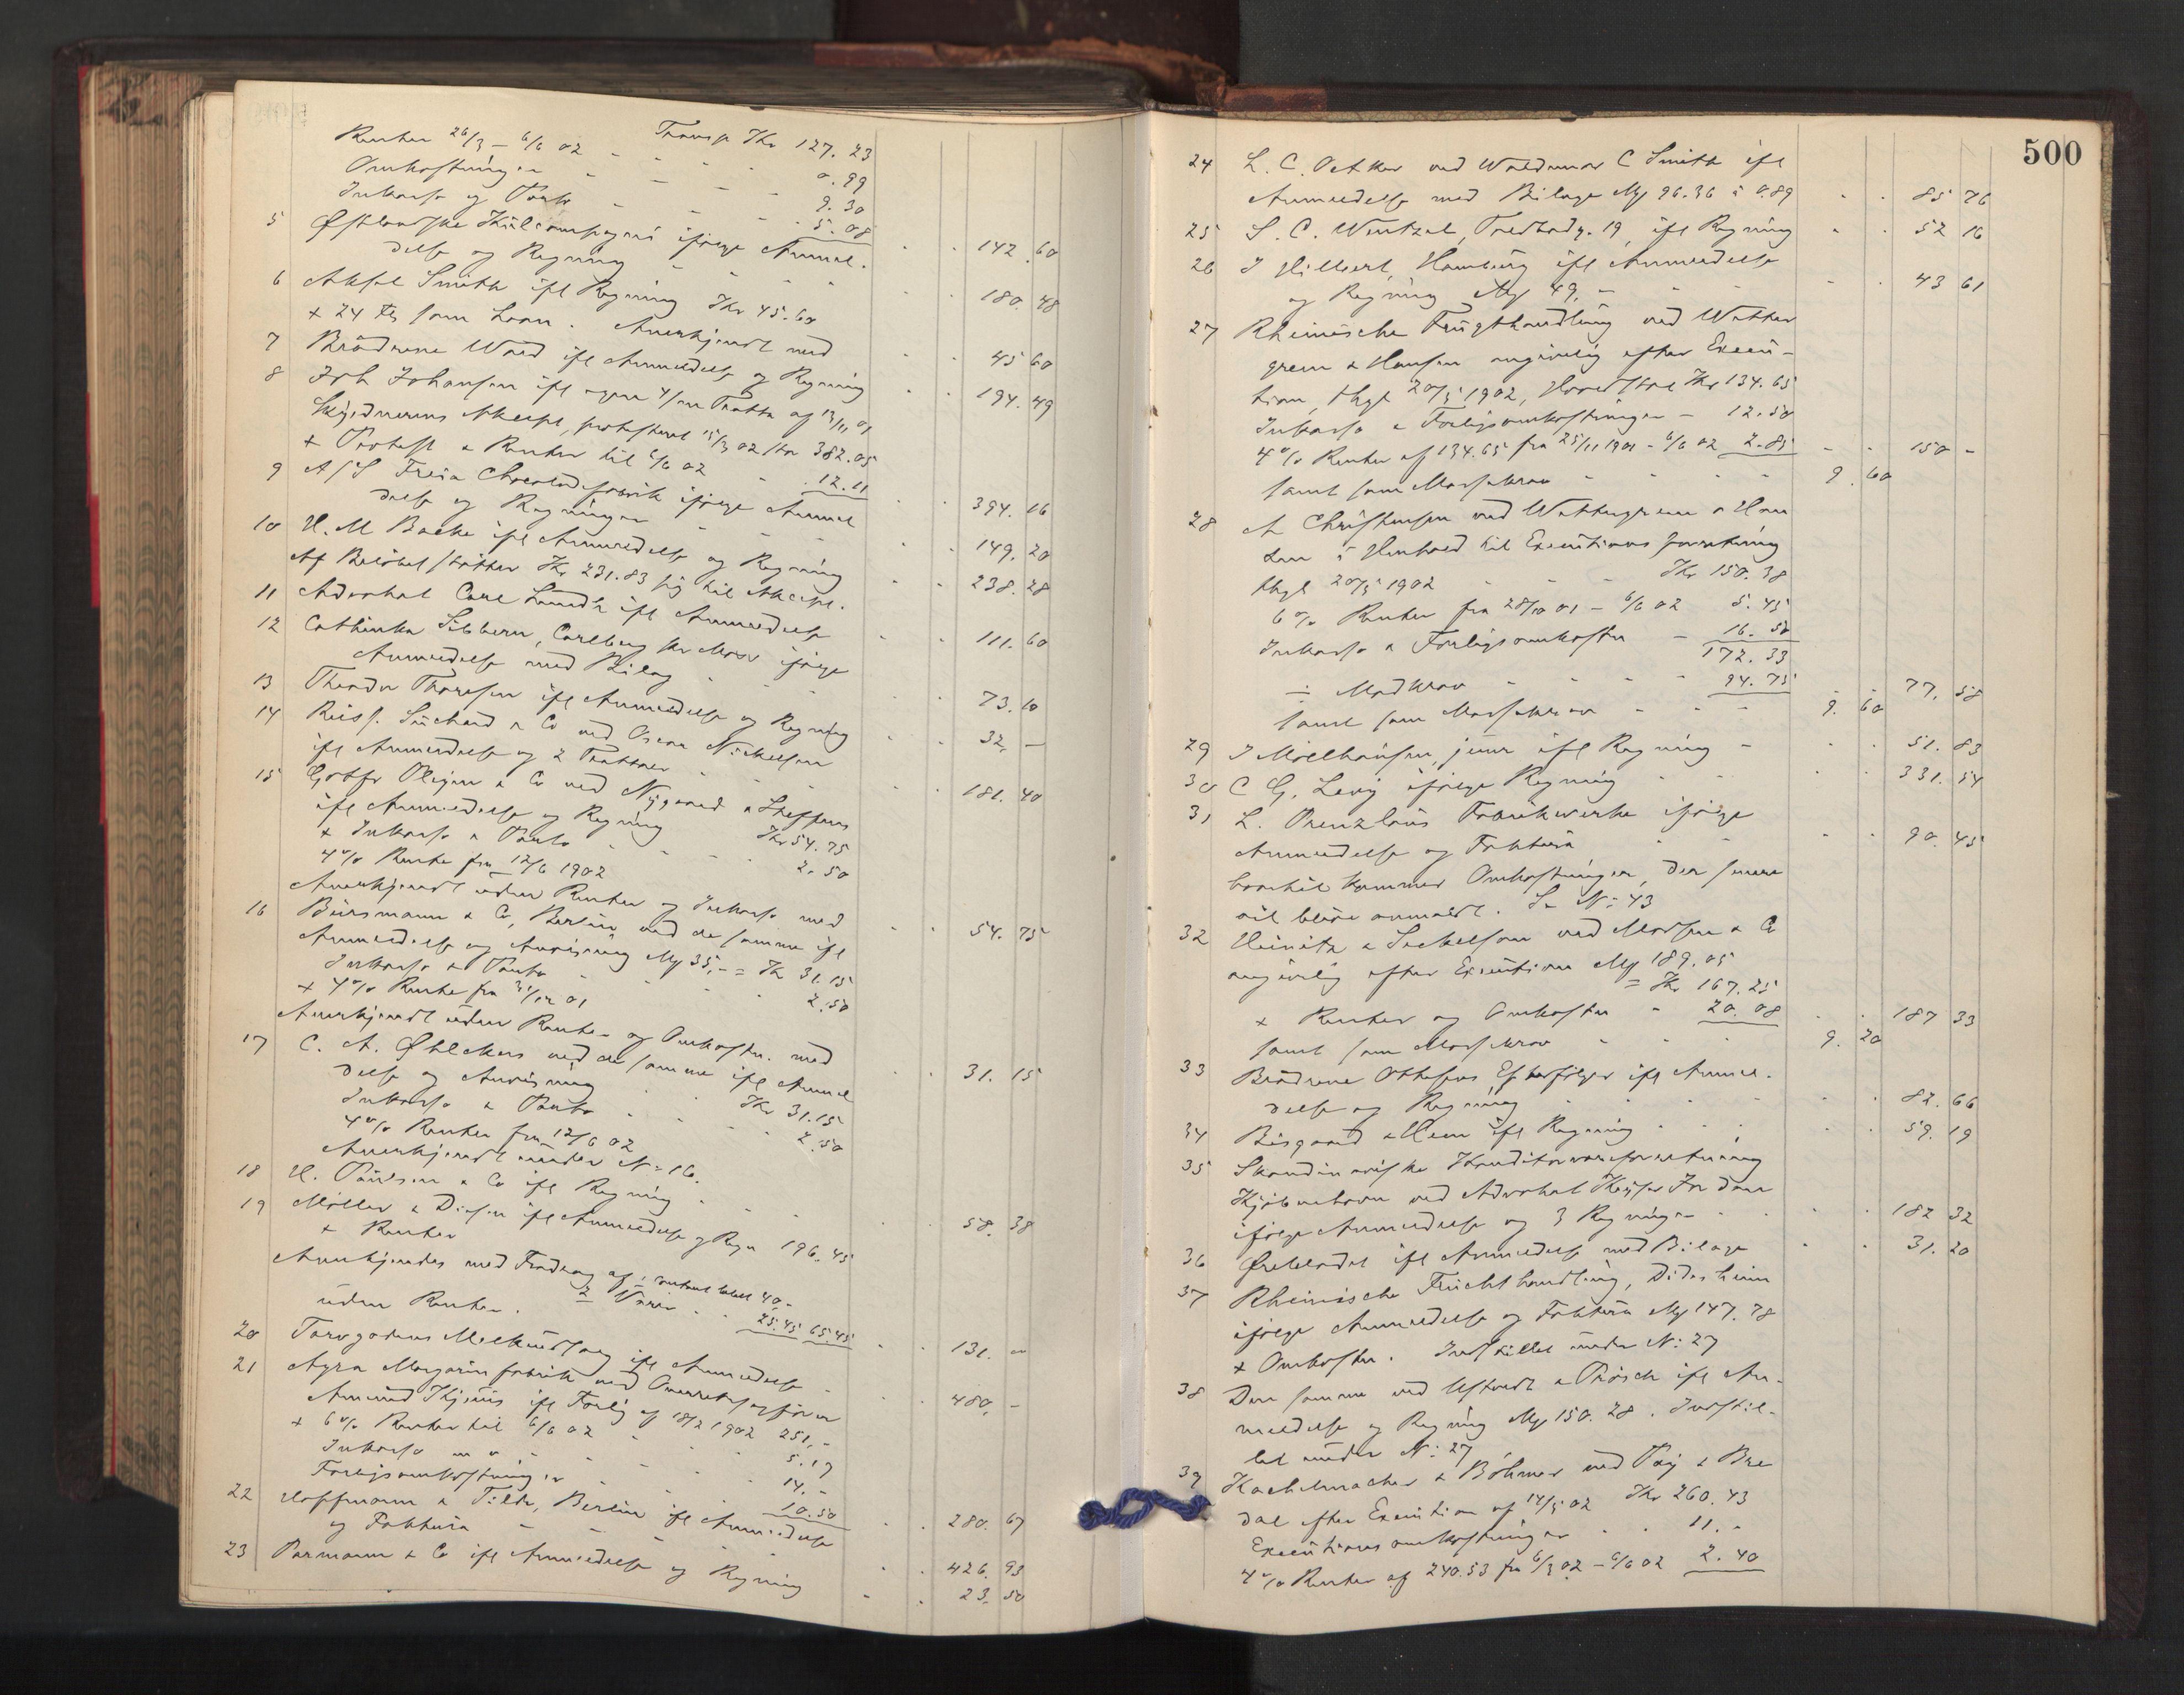 Transp Kr 127.23
Renter 26/3 – 6/6 02 - - - 0.99
Omkostninger - - - 9.30
Inkasso og Porto - - - 5.08 142.60
5 Østlandske Kulcompagni ifølge Anmel-
delse og Regning - - - 180.48
6 Aksel Smith ifl Regning Kr 45.60
+ 24 som Laan. Anerkjendt med 45 60
7 Brödrene Ward ifl Anmeldelse og Regning 194.49
8 Joh Johansen ifl egen Tratta af 13/11 01
Skyldnerens Aksept, protesteret 15/3 02 stor 382.05
+ Protest & Renter til 6/6 02 12.11 394.16
9 A/S Freia Chocoladefabrik ifølge Anmel
delse og Regninger - - 149.20
10 H. M Backe ifl Anmeldelse og Regning 238.28
Af Beløbet støtter Kr 231.83 sig til Aksept.
11 Advokat Carl Lundh ifl Anmeldelse 111.60
12 Cathinka Sibbern, Carlberg pr Moss ifølge
Anmeldelse med Bilag - - 73.10
13 Theodor Thoresen ifl Anmeldelse og Regning 32.–
14 Russ. Suchard & Co ved Oscar Nickelsen
ifl Anmeldelse og 2 Trattaer - - 181.40
15 Gotfr Olsen & Co ved Nygaard & Steffens
ifl Anmeldelse og Regning Kr 54.75
+ Inkasso & Porto - - 2.50
4% Rente fra 12/6 1902
Anerkjendt uden Renter og Inkasso med 54.75
16 Bürsmann & Co, Berlin ved de samme ifl
Anmeldelse og Anvisning Mk 35,– = Kr 31.15
Inkasso & Porto - - 2.50
+ 4% Rente fra 31/12 01
Anerkjendt uden Rente- og Omkostn. med 31.15
17 C. A. Øhlckers ved de samme ifl Anmel
delse og Anvisning Kr 31.15
Inkasso & Porto - - 2.50
4% Renter fra 12/6 02
Anerkjendt under No 16.
18 H. Poulsen & Co ifl Regning - - 58.38
19 Møller & Diesen ifl Anmeldelse & Regn 196.45
+ Renter
Anerkjendes med Fradrag af 1 contant betalt 40,–
2 Varer 25.45 65.45 131.–
uden Renter.
20 Torvgadens Melkudsalg ifl Anmeldelse 480,–
21 Agra Margarinfabrik ved Overretssagfører
Amund Kjenås ifl Forlig af 18/2 1902 251,–
+ 6% Renter til 6/6 02 - - 5.17
Inkasso m v - - 14.–
Forligsomkostninger - - 10.50 280.67
22 Hoffmann & Tiede, Berlin ifl Anmeldelse
og Faktura - - 426.93
23 Pormann & Co ifl Anmeldelse og Regning 23.50
500
24 L. C. Oetker ved Waldemar C Smith ifl
Anmeldelse med Bilage Mk 96.36 à 0.89 85 76
25 S. C. Wentzel, Toldbodg. 19, ifl Regning 52 16
26 J Hilbert, Hamburg ifl Anmeldelse
og Regning Mk 49,– 43 61
27 Rheinische Frugthandlung ved Watten
green & Hansen angivelig efter Execu-
tion, thgl 20/5 1902, Hovedstol Kr 134.65
Inkasso & Forligsomkostninger – 12.50
4% Renter af 134.65 fra 25/11 1901 – 6/6 02 2.85 150 –
samt som Massekrav - - 9.60
28 A Christensen ved Wattengreen & Han
sen i Henhold til Executionsforretning
thgl 20/5 1902 - - Kr 150.38
6% Renter fra 28/10 01 – 6/6 02 5.45
Inkasso & Forligsomkostn – 16.50
172.33
÷ Modkrav - - - 94.75 77.58
samt som Massekrav - - 9.60
29 J Mölhausen junr ifl Regning – 51.83
30 C G. Levy ifølge Regning - - 331.54
31 L. Prenzlaus Fabrikwerke ifølge
Anmeldelse og Faktura - - 90.45
hvortil kommer Omkostninger, der senere
vil blive anmeldt. Se No 43
32 Heinitz & Seckelson ved Madsen & Co
angivelig efter Execution Mk 189.05
= Kr 167.25
+ Renter og Omkostn – 20.08 187 33
samt som Massekrav - - 9.20
33 Brödrene Ottesens Efterfølger ifl Anmel-
delse og Regning - - 82.66
34 Bisgaard & Heen ifl Regning - - 59.19
35 Skandinaviske Konditorvareforretning
Kjøbenhavn ved Advokat Keyser Frødsen
ifølge Anmeldelse og 3 Regninger - 182 32
36 Ørebladet ifl Anmeldelse med Bilage 31.20
37 Rheinische Fruchthandlung, Didesheim
ifølge Anmeldelse og Faktura Mk 147.78
+ Omkostn. Indstillet under No: 27
38 Den samme ved Ustvedt & Prösch ifl An-
meldelse og Regning Mk 150.28. Indstil-
let under No: 27
39 Kachelmacher & Böhmer ved Pay & Bre
dal efter Execution af 14/5 02 Kr 260.43
Executionsomkostninger - - 11.–
4% Renter af 240.53 fra 6/3 02 – 6/6 02 2.40